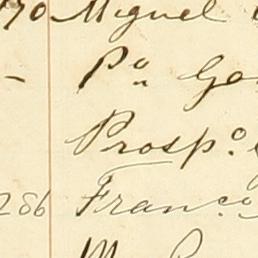 70 Miguel
– Pº Go
Prospº
286 Francº
M